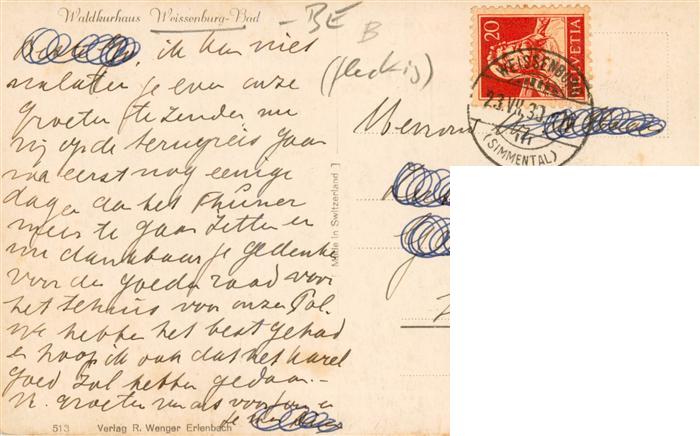 Waldkurhaus Weissenburg-Bad
- BE
B
(fleckig)
, ik kan niet
nalaten je even onze
groeten te zenden nu
wij op de terugreis gaan
na eerst nog eenige
dagen aan het Thuner
meer te gaan zitten en
me dankbaar je gedenke
voor den goeden raad voor
het tehuis voor onze Pol.
We hebben het best gehad
en hoop ik ook dat het Karel
goed zal hebben gedaan. -
V. groeten van ons voor jou en
je
513 Verlag R. Wenger Erlenbach
Made in Switzerland
20
HELVETIA
WEISSENBURG
23.VII.30
(SIMMENTAL)
Mevrouw